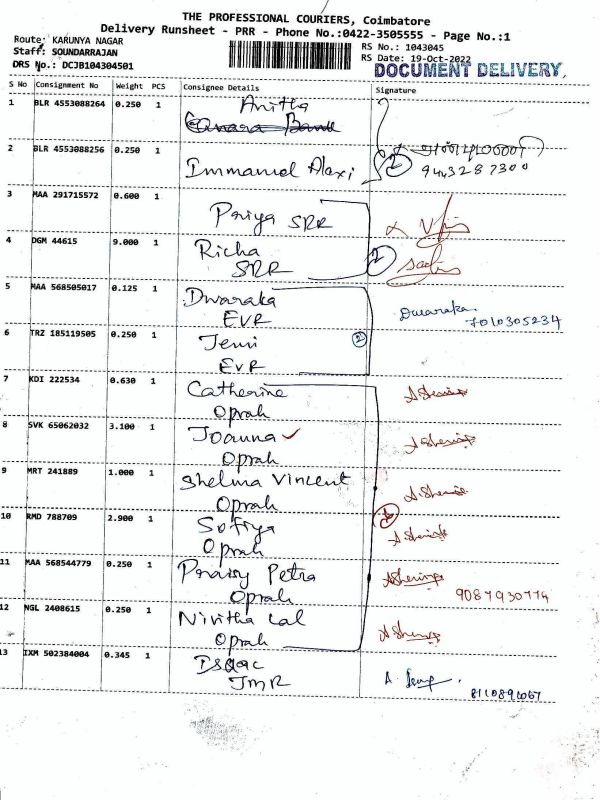 THE PROFESSIONAL COURIERS, Coimbatore
Delivery Runsheet - PRR - Phone No.:0422-3505555 - Page No.:1
Route: KARUNYA NAGAR
Staff: SOUNDARRAJAN
DRS No.: DCJB104304501
RS No.: 1043045
RS Date: 19-Oct-2022
DOCUMENT DELIVERY
S No Consignment No Weight PCS Consignee Details Signature
1 BLR 4553088264 0.250 1 Anitha
Canara Bank
2 BLR 4553088256 0.250 1 Immanuel Alaxi 2 9443287300
3 MAA 291715572 0.600 1 Priya SRR
4 DGM 44615 9.000 1 Richa
SRR 2
5 MAA 568505017 0.125 1 Dwaraka
EVR Dwaraka
7010305234
6 TRZ 185119505 0.250 1 Jemi
EVR 2
7 KDI 222534 0.630 1 Catherine
Oprah
8 SVK 65062032 3.100 1 Joanna
Oprah
9 MRT 241889 1.000 1 Shelma Vincent
Oprah
10 RMD 788709 2.900 1 Sofiya
Oprah
11 MAA 568544779 0.250 1 Praisy Petra
Oprah 9087930774
12 NGL 2408615 0.250 1 Nivitha Lal
Oprah
13 IXM 502384004 0.345 1 Isaac
JMR